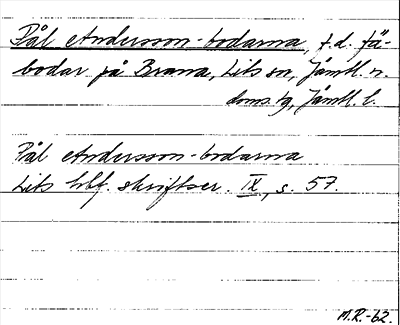 Pål Andersson-bodarna, f.d. fä-
bodar på Brana, Lits sn, Jämtl. n.
doms. tg, Jämtl. l.
Pål Andersson-bodarna
Lits hbf. skriftser. IX, s. 57.
M.R.-62.